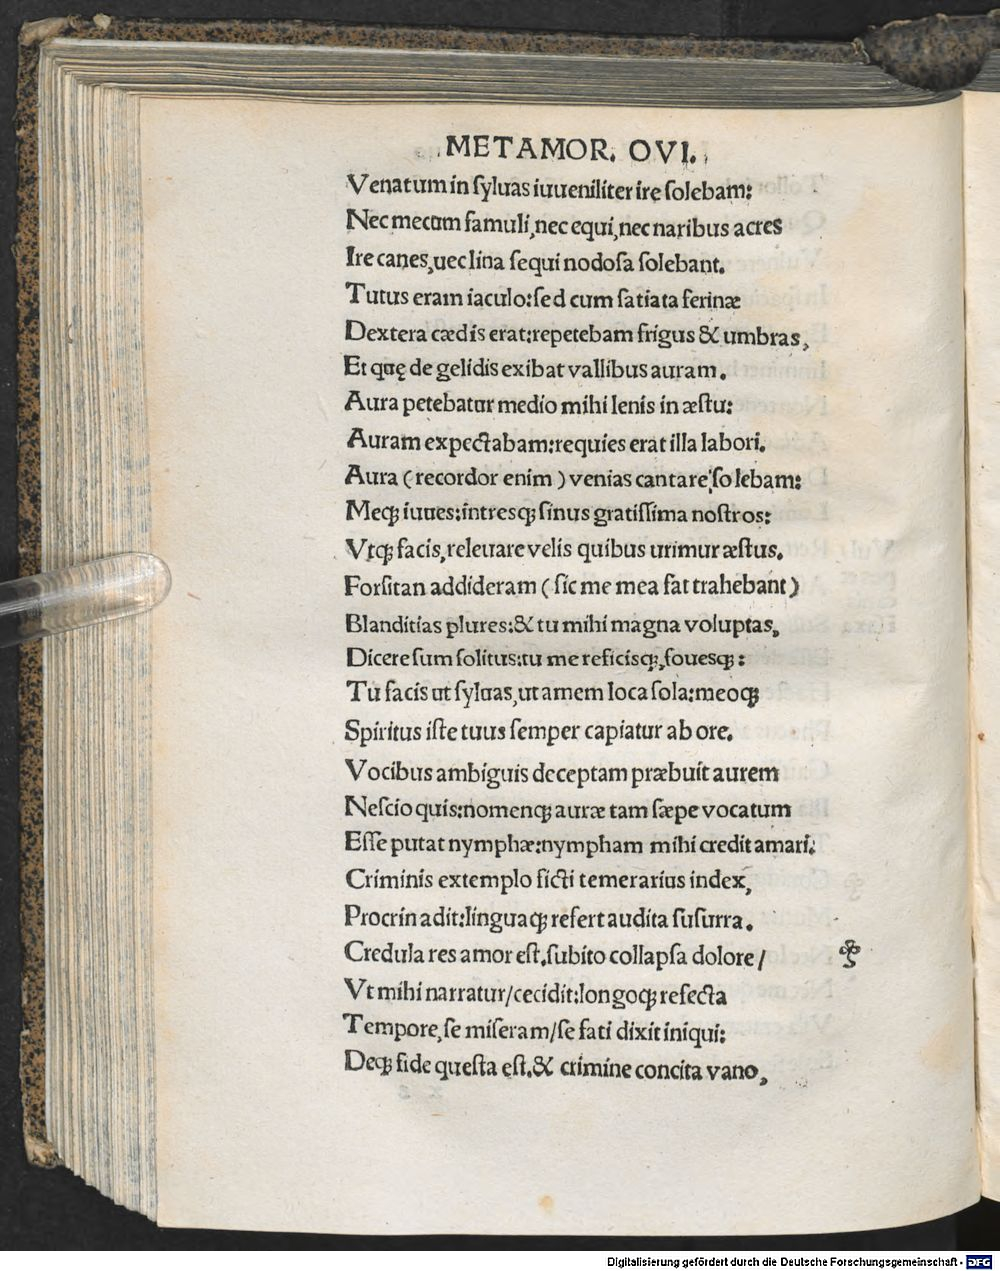 METAMOR. OVI.
Venatum in syluas iuueniliter ire solebam:
Nec mecum famuli, nec equi, nec naribus acres
Ire canes, uec lina sequi nodosa solebant.
Tutus eram iaculo: sed cum satiata ferinæ
Dextera cædis erat: repetebam frigus & umbras,
Et quę de gelidis exibat vallibus auram.
Aura petebatur medio mihi lenis in æstu:
Auram expectabam: requies erat illa labori.
Aura (recordor enim) venias cantare solebam:
Meqꝫ iuues: intresqꝫ sinus gratissima nostros:
Vtqꝫ facis, releuare velis quibus urimur æstus.
Forsitan addideram (sic me mea fat trahebant)
Blanditias plures: & tu mihi magna voluptas,
Dicere sum solitus: tu me reficisqꝫ, fouesqꝫ:
Tu facis ut syluas, ut amem loca sola: meoqꝫ
Spiritus iste tuus semper capiatur ab ore.
Vocibus ambiguis deceptam præbuit aurem
Nescio quis: nomenqꝫ auræ tam sæpe vocatum
Esse putat nymphæ: nympham mihi credit amari.
Criminis extemplo ficti temerarius index,
Procrin adit: linguaqꝫ refert audita susurra.
Credula res amor est. subito collapsa dolore /
Vt mihi narratur / cecidit: longoqꝫ refecta
Tempore, se miseram / se fati dixit iniqui:
Deqꝫ fide questa est. & crimine concita vano,
Digitalisierung gefördert durch die Deutsche Forschungsgemeinschaft - DFG